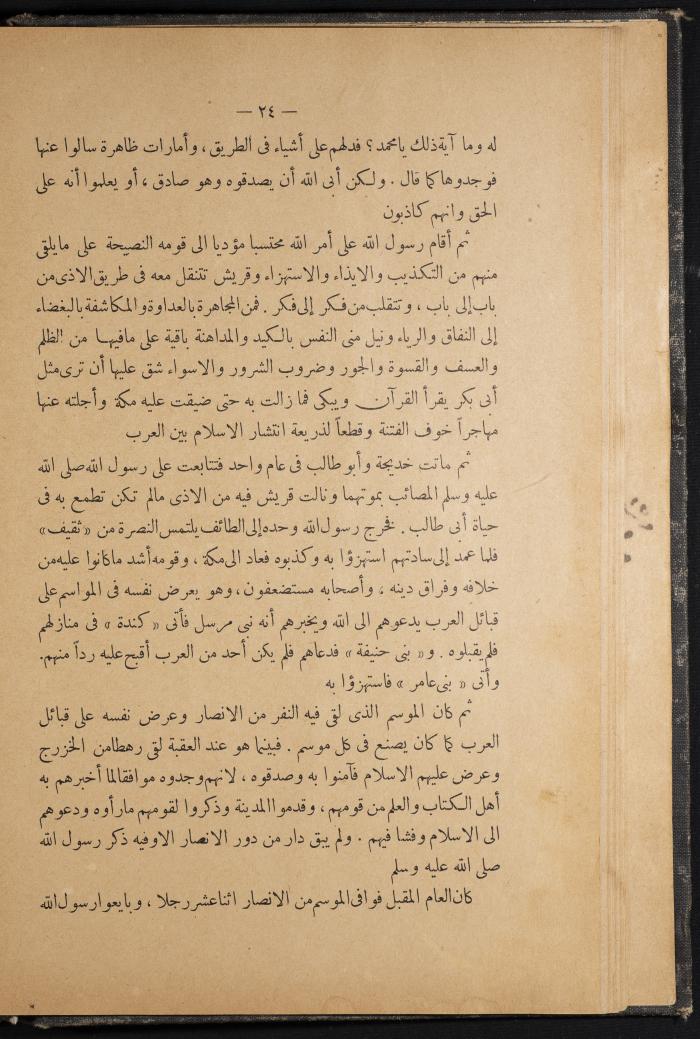 — ٢٤ —
له وما آية ذلك يامحمد؟ فدلهم على أشياء فى الطريق ، وأمارات ظاهرة سالوا عنها
فوجدوها كما قال . ولكن أبى الله أن يصدقوه وهو صادق ، أو يعلموا أنه على
الحق وانهم كاذبون
ثم أقام رسول الله على أمر الله محتسبا مؤديا الى قومه النصيحة على مايلقى
منهم من التكذيب والايذاء والاستهزاء وقريش تتنقل معه فى طريق الاذى من
باب إلى باب ، وتتقلب من فكر إلى فكر . فمن المجاهرة بالعداوة والمكاشفة بالبغضاء
إلى النفاق والرياء ونيل منى النفس بالكيد والمداهنة باقية على مافيها من الظلم
والعسف والقسوة والجور وضروب الشرور والاسواء شق عليها أن ترى مثل
أبى بكر يقرأ القرآن ويبكى فما زالت به حتى ضيقت عليه مكة وأجلته عنها
مهاجراً خوف الفتنة وقطعاً لذريعة انتشار الاسلام بين العرب
ثم ماتت خديجة وأبو طالب فى عام واحد فتتابعت على رسول الله صلى الله
عليه وسلم المصائب بموتهما ونالت قريش فيه من الاذى مالم تكن تطمع به فى
حياة أبى طالب . فخرج رسول الله وحده إلى الطائف يلتمس النصرة من « ثقيف »
فلما عمد إلى سادتهم استهزؤا به وكذبوه فعاد الى مكة ، وقومه أشد ما كانوا عليه من
خلافه وفراق دينه ، وأصحابه مستضعفون ، وهو يعرض نفسه فى المواسم على
قبائل العرب يدعوهم الى الله ويخبرهم أنه نبى مرسل فأتى « كندة » فى منازلهم
فلم يقبلوه . و« بنى حنيفة » فدعاهم فلم يكن أحد من العرب أقبح عليه رداً منهم.
وأتى « بنى عامر » فاستهزؤا به
ثم كان الموسم الذى لقى فيه النفر من الانصار وعرض نفسه على قبائل
العرب كما كان يصنع فى كل موسم . فبينما هو عند العقبة لقى رهطا من الخزرج
وعرض عليهم الاسلام فآمنوا به وصدقوه ، لانهم وجدوه موافقا لما أخبرهم به
أهل الكتاب والعلم من قومهم ، وقدموا المدينة وذكروا لقومهم مارأوه ودعوهم
الى الاسلام وفشا فيهم . ولم يبق دار من دور الانصار الا وفيه ذكر رسول الله
صلى الله عليه وسلم
كان العام المقبل فوافى الموسم من الانصار اثنا عشر رجلا ، وبايعوا رسول الله